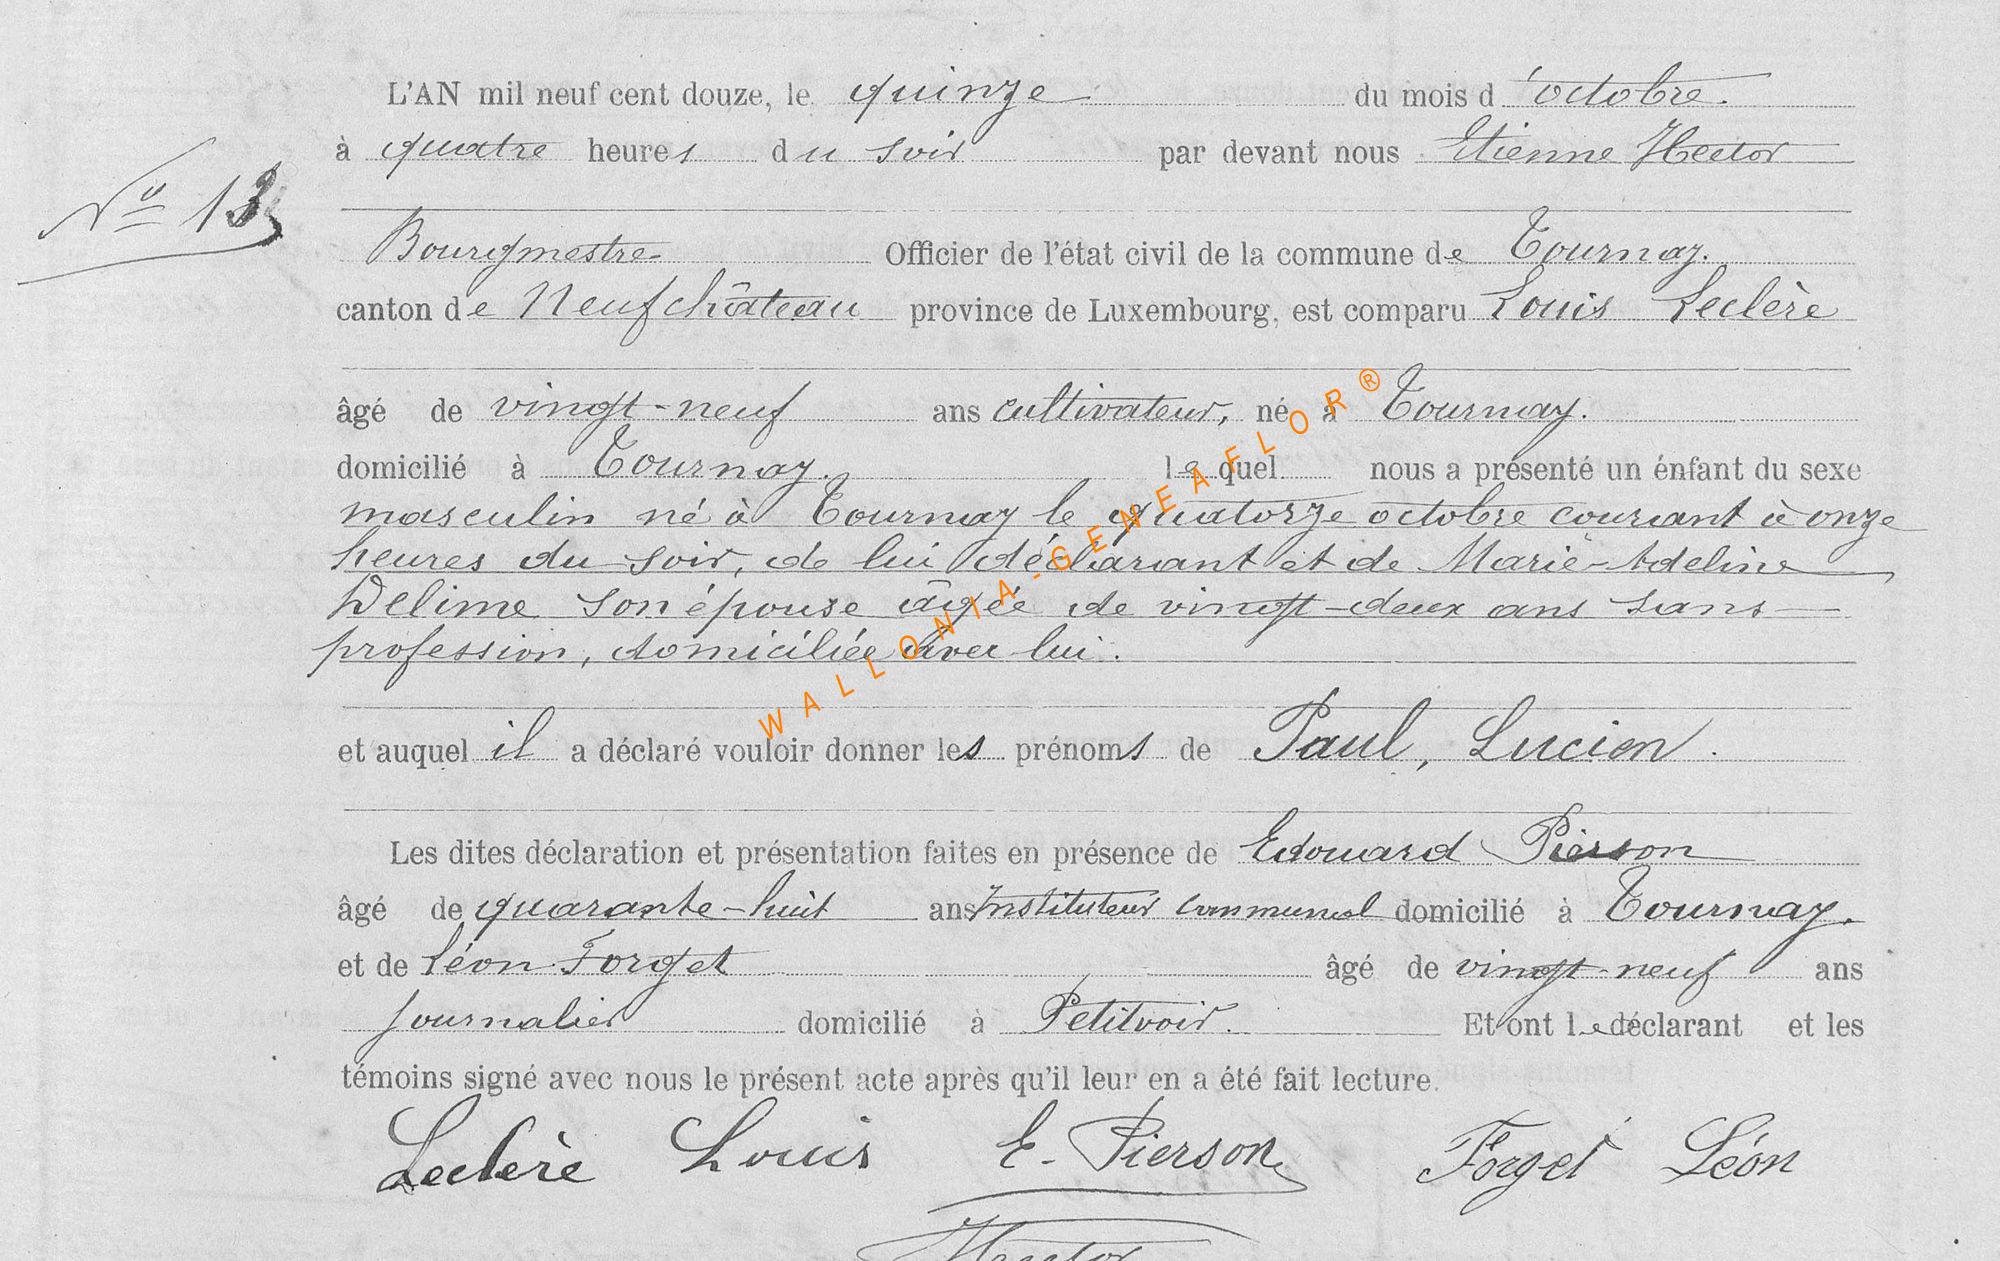 L'AN mil neuf cent douze, le quinze du mois d'octobre.
à quatre heures du soir par devant nous Etienne Hector
No 13
Bourgmestre Officier de l'état civil de la commune de Tournay.
canton de Neufchâteau province de Luxembourg, est comparu Louis Leclère
âgé de vingt-neuf ans cultivateur, né à Tournay.
domicilié à Tournay. lequel nous a présenté un énfant du sexe
masculin né à Tournay le quatorze octobre courant à onze
heures du soir, de lui déclarant et de Marie-Adeline
Delime son épouse âgée de vingt-deux ans sans
profession, domiciliée avec lui.
et auquel il a déclaré vouloir donner les prénoms de Paul, Lucien.
Les dites déclaration et présentation faites en présence de Edouard Pierson
âgé de quarante-huit ans Instituteur communal domicilié à Tournay.
et de Léon Forget âgé de vingt-neuf ans
journalier domicilié à Petitvoir. Et ont le déclarant et les
témoins signé avec nous le présent acte après qu'il leur en a été fait lecture.
Leclère Louis E. Pierson Forget Léon
Hector
WALLONIA-GENEAFLOR®